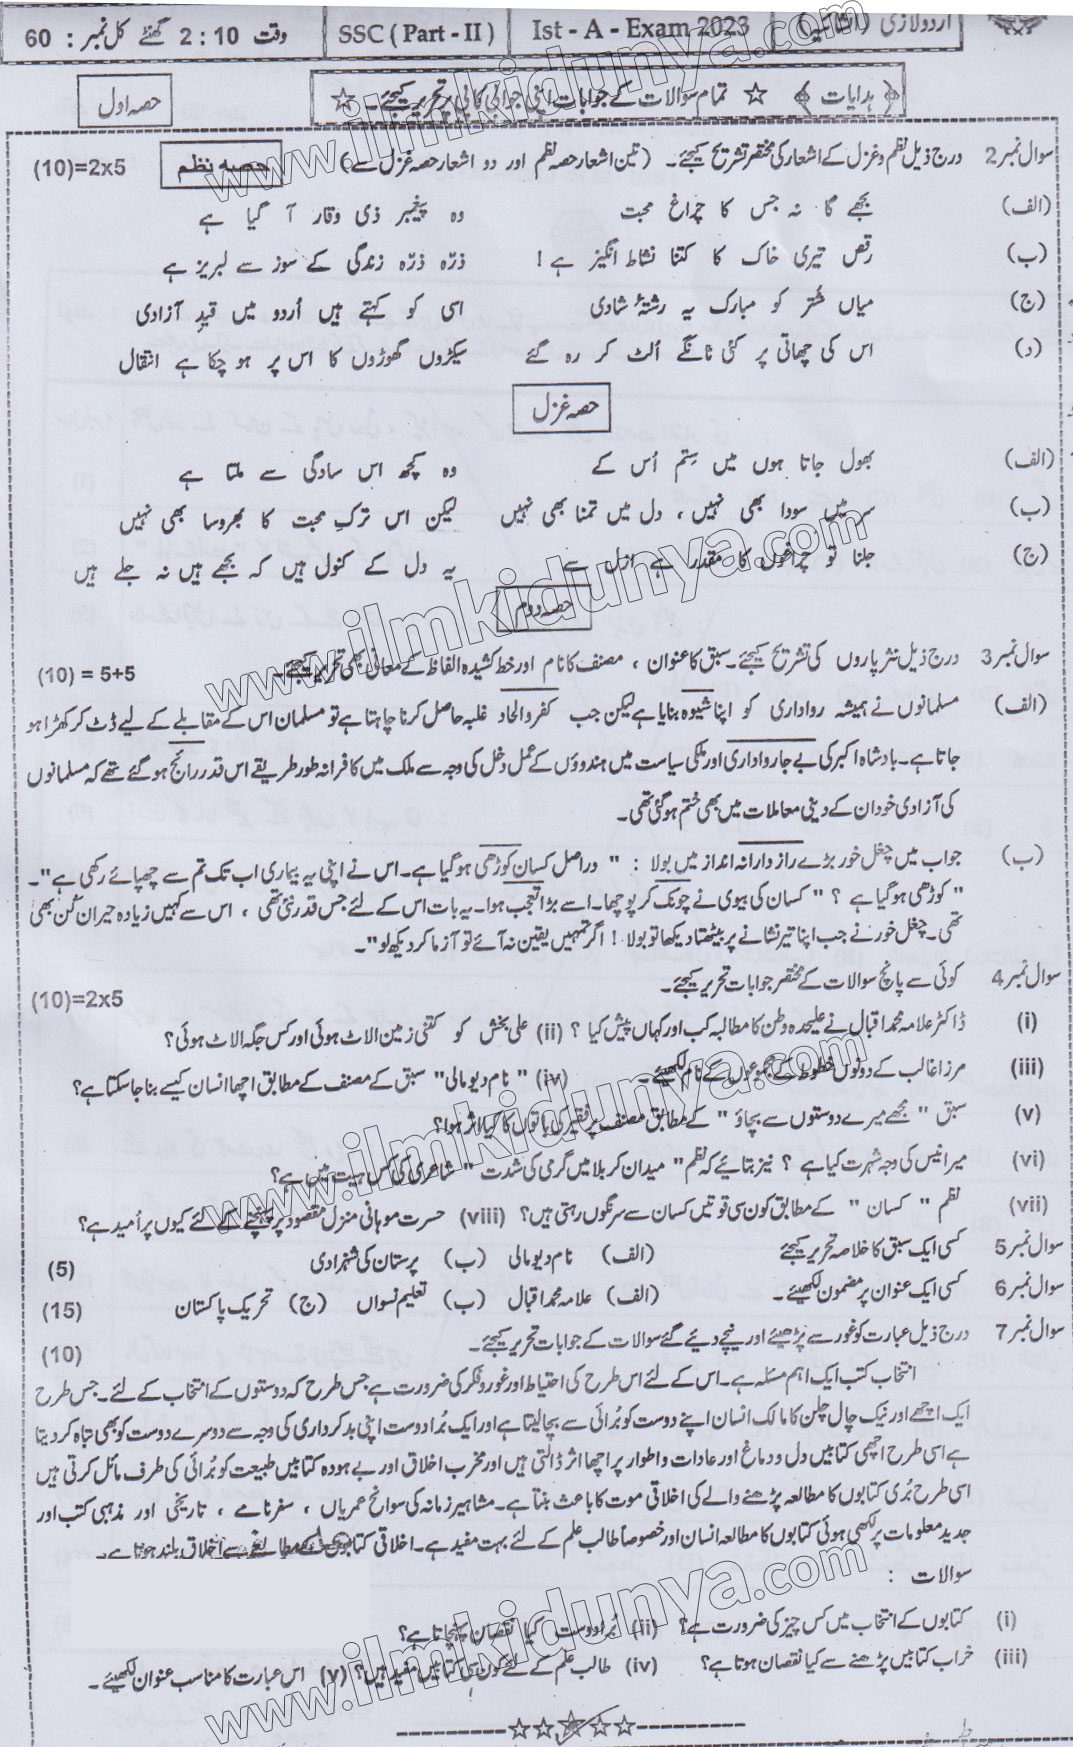 اردو لازمی (انشائیہ) Ist - A - Exam 2023 SSC ( Part - II ) وقت 2 : 10 گھنٹے کل نمبر : 60
﴿ ہدایات ﴾ ☆ تمام سوالات کے جوابات اپنی جوابی کاپی پر تحریر کیجئے۔ ☆ حصہ اول
سوال نمبر 2 درج ذیل نظم و غزل کے اشعار کی مختصر تشریح کیجئے۔ (تین اشعار حصہ نظم اور دو اشعار حصہ غزل سے) حصہ نظم (10)=2x5
(الف) بجھے گا نہ جس کا چراغ محبت وہ پیغمبر ذی وقار آ گیا ہے
(ب) رقص تیری خاک کا کتنا نشاط انگیز ہے ! ذرّہ ذرّہ زندگی کے سوز سے لبریز ہے
(ج) میاں شتر کو مبارک یہ رشتۂ شادی اسی کو کہتے ہیں اُردو میں قیدِ آزادی
(د) اس کی چھاتی پر کئی تانگے اُلٹ کر رہ گئے سیکڑوں گھوڑوں کا اس پر ہو چکا ہے انتقال
حصہ غزل
(الف) بھول جاتا ہوں میں سِتم اُس کے وہ کچھ اس سادگی سے ملتا ہے
(ب) سر میں سودا بھی نہیں ، دل میں تمنا بھی نہیں لیکن اس ترکِ محبت کا بھروسا بھی نہیں
(ج) جلنا تو چراغوں کا مقدر ہے ازل سے یہ دل کے کنول ہیں کہ بجھے ہیں نہ جلے ہیں
حصہ دوم
سوال نمبر 3 درج ذیل نثر پاروں کی تشریح کیجئے۔ سبق کا عنوان ، مصنف کا نام اور خط کشیدہ الفاظ کے معانی بھی تحریر کیجئے۔ (10) = 5+5
(الف) مسلمانوں نے ہمیشہ رواداری کو اپنا شیوہ بنایا ہے لیکن جب کفر و الحاد غلبہ حاصل کرنا چاہتا ہے تو مسلمان اس کے مقابلے کے لیے ڈٹ کر کھڑا ہو
جاتا ہے۔ بادشاہ اکبر کی بے جا رواداری اور ملکی سیاست میں ہندوؤں کے عمل دخل کی وجہ سے ملک میں کافرانہ طور طریقے اس قدر رائج ہو گئے تھے کہ مسلمانوں
کی آزادی خود ان کے دینی معاملات میں بھی ختم ہو گئی تھی۔
(ب) جواب میں چغل خور بڑے راز دارانہ انداز میں بولا : " دراصل کسان کوڑھی ہو گیا ہے۔ اس نے اپنی یہ بیماری اب تک تم سے چھپائے رکھی ہے"۔
" کوڑھی ہو گیا ہے ؟ " کسان کی بیوی نے چونک کر پوچھا۔ اسے بڑا تعجب ہوا۔ یہ بات اس کے لئے جس قدر نئی تھی ، اس سے کہیں زیادہ حیران کُن بھی
تھی۔ چغل خور نے جب اپنا تیر نشانے پر بیٹھتا دیکھا تو بولا ! اگر تمہیں یقین نہ آئے تو آزما کر دیکھ لو"۔
سوال نمبر 4 کوئی سے پانچ سوالات کے مختصر جوابات تحریر کیجئے۔ (10)=2x5
(i) ڈاکٹر علامہ محمد اقبال نے علیحدہ وطن کا مطالبہ کب اور کہاں پیش کیا ؟ (ii) علی بخش کو کتنی زمین الاٹ ہوئی اور کس جگہ الاٹ ہوئی ؟
(iii) مرزا غالب کے دونوں خطوط کے مجموعوں کے نام لکھیئے۔ (iv) " نام دیو مالی" سبق کے مصنف کے مطابق اچھا انسان کیسے بنا جا سکتا ہے ؟
(v) سبق " مجھے میرے دوستوں سے بچاؤ " کے مطابق مصنف پر فقیر کی باتوں کا کیا اثر ہوا ؟
(vi) میر انیس کی وجہ شہرت کیا ہے ؟ نیز بتائیے کہ نظم " میدان کربلا میں گرمی کی شدت " شاعری کی کس ہیت میں ہے ؟
(vii) نظم " کسان " کے مطابق کون سی قوتیں کسان سے سرنگوں رہتی ہیں ؟ (viii) حسرت موہانی منزل مقصود پر پہنچنے کے لئے کیوں پر اُمید ہے ؟
سوال نمبر 5 کسی ایک سبق کا خلاصہ تحریر کیجئے (الف) نام دیو مالی (ب) پرستان کی شہزادی (5)
سوال نمبر 6 کسی ایک عنوان پر مضمون لکھیئے۔ (الف) علامہ محمد اقبال (ب) تعلیم نسواں (ج) تحریک پاکستان (15)
سوال نمبر 7 درج ذیل عبارت کو غور سے پڑھیئے اور نیچے دیئے گئے سوالات کے جوابات تحریر کیجئے۔ (10)
انتخاب کتب ایک اہم مسئلہ ہے۔ اس کے لئے اس طرح کی احتیاط اور غور و فکر کی ضرورت ہے جس طرح کہ دوستوں کے انتخاب کے لئے۔ جس طرح
ایک اچھے اور نیک چال چلن کا مالک انسان اپنے دوست کو بُرائی سے بچا لیتا ہے اور ایک بُرا دوست اپنی بدکرداری کی وجہ سے دوسرے دوست کو بھی تباہ کر دیتا
ہے اسی طرح اچھی کتابیں دل و دماغ اور عادات و اطوار پر اچھا اثر ڈالتی ہیں اور مخرب اخلاق اور بے ہودہ کتابیں طبیعت کو بُرائی کی طرف مائل کرتی ہیں
اسی طرح بُری کتابوں کا مطالعہ پڑھنے والے کی اخلاقی موت کا باعث بنتا ہے۔ مشاہیر زمانہ کی سوانح عمریاں ، سفر نامے ، تاریخی اور مذہبی کتب اور
جدید معلومات پر لکھی ہوئی کتابوں کا مطالعہ انسان اور خصوصاً طالب علم کے لئے بہت مفید ہے۔ اخلاقی کتابوں کے مطالعے سے اخلاق بلند ہوتا ہے۔
سوالات :
(i) کتابوں کے انتخاب میں کس چیز کی ضرورت ہے ؟ (ii) بُرا دوست کیا نقصان پہنچاتا ہے ؟
(iii) خراب کتابیں پڑھنے سے کیا نقصان ہوتا ہے ؟ (iv) طالب علم کے لئے کون سی کتابیں مفید ہیں ؟ (v) اس عبارت کا مناسب عنوان لکھیئے۔
www.ilmkidunya.com
www.ilmkidunya.com
www.ilmkidunya.com
www.ilmkidunya.com